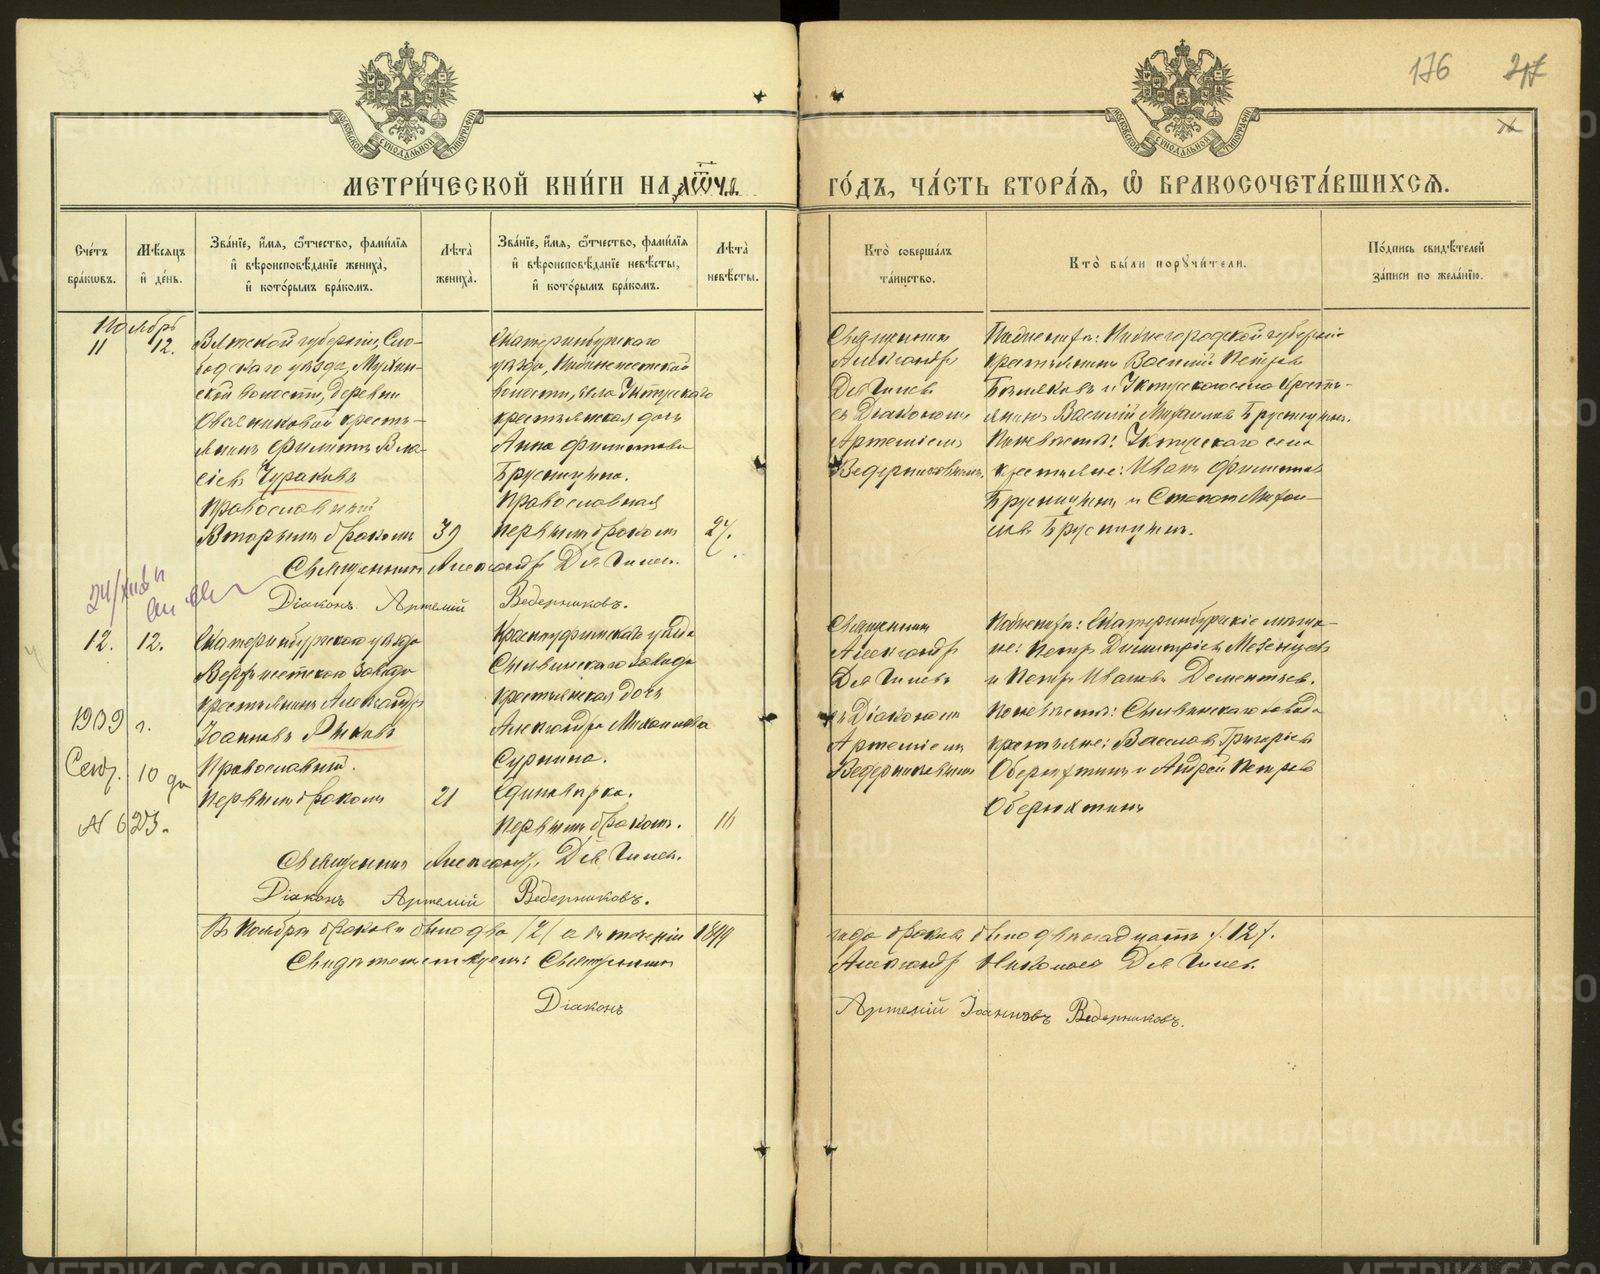 176 217
МОСКОВСКОЙ СУНОДАЛЬНОЙ ТИПОГРАФІИ
МОСКОВСКОЙ СУНОДАЛЬНОЙ ТИПОГРАФІИ
МЕТРИ́ЧЕСКОЙ КНИ́ГИ НА
ГО́ДЪ, ЧА́СТЬ ВТОРА́Ѧ, Ѽ БРАКОСОЧЕТА́ВШИХСѦ.
Сче́тъ бра́кωвъ.
Мѣ́сяцъ и҆ де́нь.
Зва́нїе, и҆́мя, ѻ҆́тчество, фами́лїя и҆ вѣроисповѣ́данїе жениха̀, и҆ кото́рымъ бра́комъ.
Лѣ́та жениха̀.
Зва́нїе, и҆́мя, ѻ҆́тчество, фами́лїя и҆ вѣроисповѣ́данїе невѣ́сты, и҆ кото́рымъ бра́комъ.
Лѣ́та невѣ́сты.
Кто̀ соверша́лъ та́инство.
Кто̀ бы́ли порꙋчи́тели.
По́дпись свидѣ́телей за́писи по жела́нїю.
Ноябрь
11
12.
Вятской губерніи, Сло-
бодскаго уѣзда, Мухин-
ской волости, деревни
крестья-
нинъ Филиппъ Вла-
сіевъ Чураковъ
Православный
Вторымъ бракомъ
39
Екатеринбургскаго
уѣзда, Нижнеисетской
волости, села Уктусскаго
крестьянская дочь
Анна Филиппова
Брусницына.
Православная
первымъ бракомъ
27.
Священникъ
Александръ
Дягилевъ
съ Діакономъ
Артеміемъ
Ведерниковымъ.
По женихѣ: Нижегородской губерніи
крестьянинъ Василій Петровъ
и Уктусскаго села кресть-
янинъ Василій Михаиловъ Брусницынъ.
По невѣстѣ: Уктусскаго села
крестьяне: Иванъ Филипповъ
Брусницынъ и Степанъ Михаи-
ловъ Брусницынъ.
Священникъ Александръ Дягилевъ.
Діаконъ Артемій Ведерниковъ.
12.
12.
Екатеринбургскаго уѣзда
Верхъ-исетскаго завода
крестьянинъ Александръ
Іоанновъ Рыковъ
Православный.
Первымъ бракомъ
21
Красноуфимскаго уѣзда
Сылвинскаго завода
крестьянская дочь
Александра Михаилова
Сурнина.
Единовѣрка.
Первымъ бракомъ.
16
Священникъ
Александръ
Дягилевъ
съ Діакономъ
Артеміемъ
Ведерниковымъ
По женихѣ: Екатеринбургскіе мѣща-
не: Петръ Димитріевъ Мезенцевъ
и Петръ Ивановъ Дементьевъ.
По невѣстѣ: Сылвинскаго завода
крестьяне: Григоріевъ
Оберюхтинъ и Андрей Петровъ
Оберюхтинъ
1909 г.
Сент. 10 дня
№ 623.
Священникъ Александръ Дягилевъ.
Діаконъ Артемій Ведерниковъ.
Въ Ноябрѣ браковъ было два /2/ а въ теченіи 1899 года браковъ было двѣнадцать /12/.
Свидѣтельствуемъ: Священникъ Александръ Николаевъ Дягилевъ.
Діаконъ Артемій Іоанновъ Ведерниковъ.
METRIKI.GASO-URAL.RU